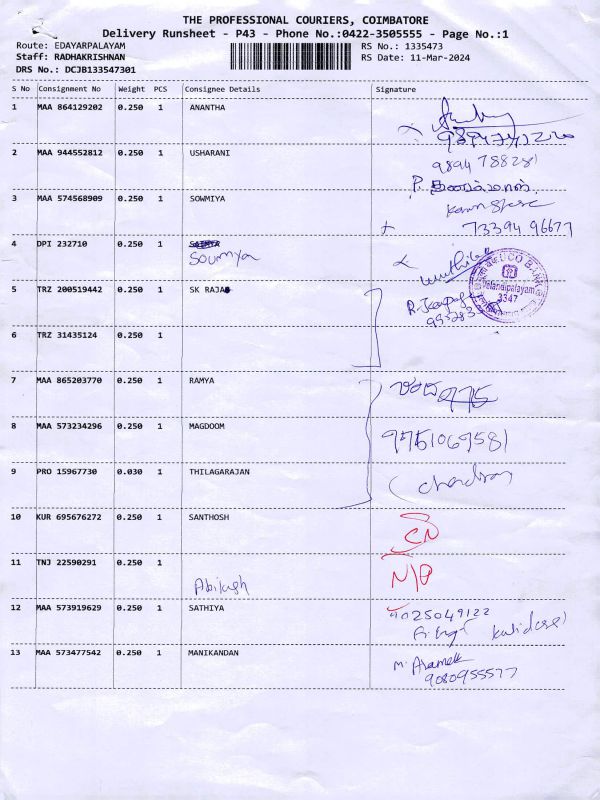 THE PROFESSIONAL COURIERS, COIMBATORE
Delivery Runsheet - P43 - Phone No.:0422-3505555 - Page No.:1
Route: EDAYARPALAYAM RS No.: 1335473
Staff: RADHAKRISHNAN RS Date: 11-Mar-2024
DRS No.: DCJB133547301
S No Consignment No Weight PCS Consignee Details Signature
1 MAA 864129202 0.250 1 ANANTHA
2 MAA 944552812 0.250 1 USHARANI
9894788281
3 MAA 574568909 0.250 1 SOWMIYA
73394 96677
4 DPI 232710 0.250 1
Soumya
UCO BANK
3347
5 TRZ 200519442 0.250 1 SK RAJA
6 TRZ 31435124 0.250 1
7 MAA 865203770 0.250 1 RAMYA
8 MAA 573234296 0.250 1 MAGDOOM
9751069581
9 PRO 15967730 0.030 1 THILAGARAJAN
10 KUR 695676272 0.250 1 SANTHOSH
CN
11 TNJ 22590291 0.250 1
Abilash
N/P
12 MAA 573919629 0.250 1 SATHIYA
9025049122
13 MAA 573477542 0.250 1 MANIKANDAN
9080955577